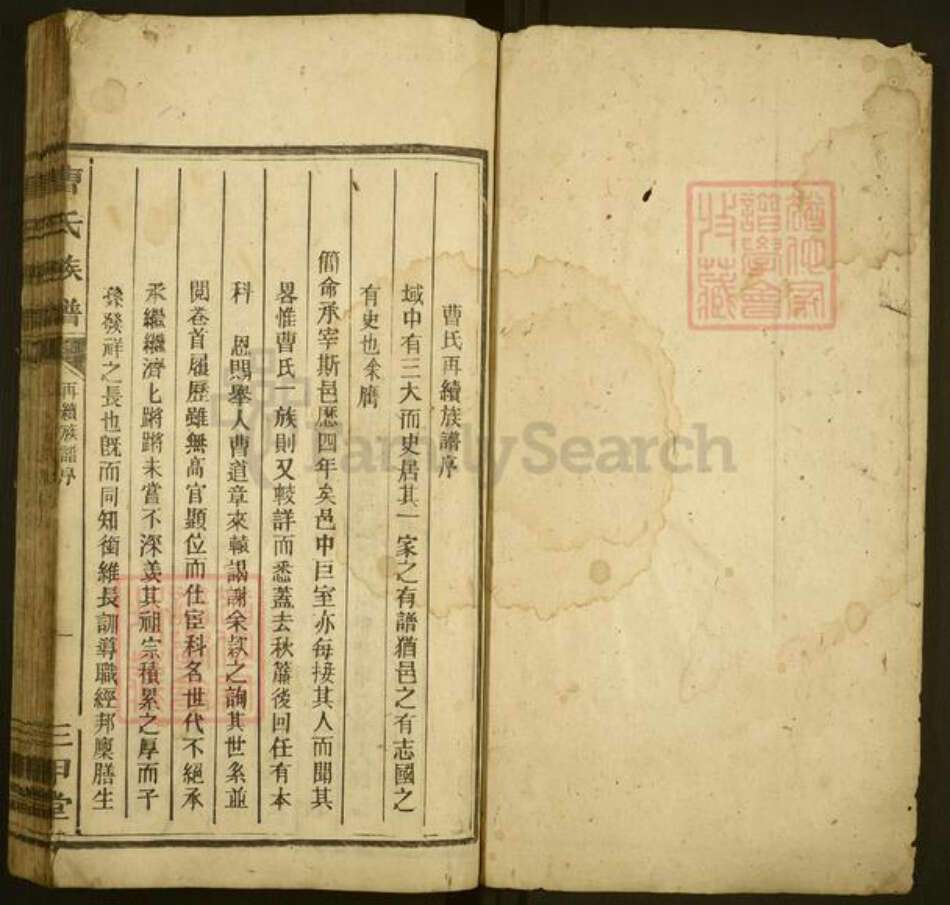 曹氏再續族譜序
域中有三大而史居其一家之有譜猶邑之有志國之
有史也余膺
簡命承宰斯邑歷四年矣邑中巨室亦每接其人而聞其
畧惟曹氏一族則又較詳而悉蓋去秋蕭後回任有本
科 恩賜舉人曹道章來轅謁謝余款之詢其世系並
閱卷首履歷雖無高官顯位而仕宦科名世代不絕承
承繼繼濟濟蹌蹌未嘗不深羨其祖宗積累之厚而子
孫發祥之長也既而同知銜維長訓導職經邦廩膳生
曹氏族譜
再續族譜序
一
三甲堂
譜學會
收藏
FamilySearch